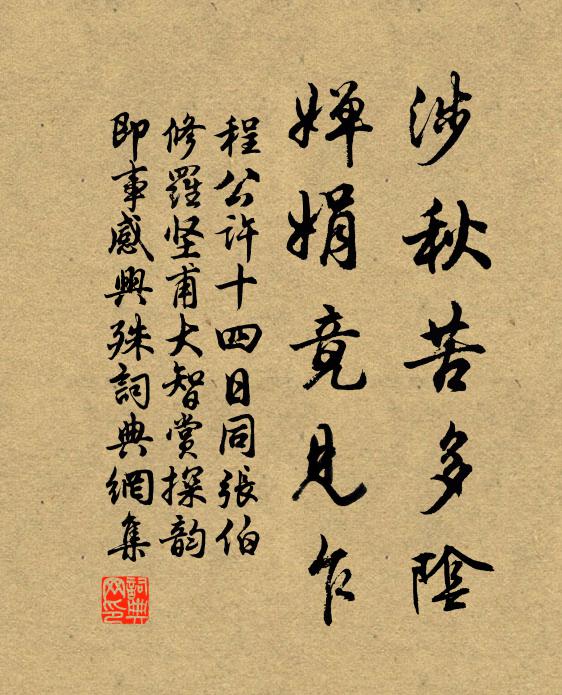 涉秋苦多陰
婵娟竟見乍
程公许十四日同張伯
修羅坚甫大智赏探韵
即事感興殊詞典網集
詞典網印